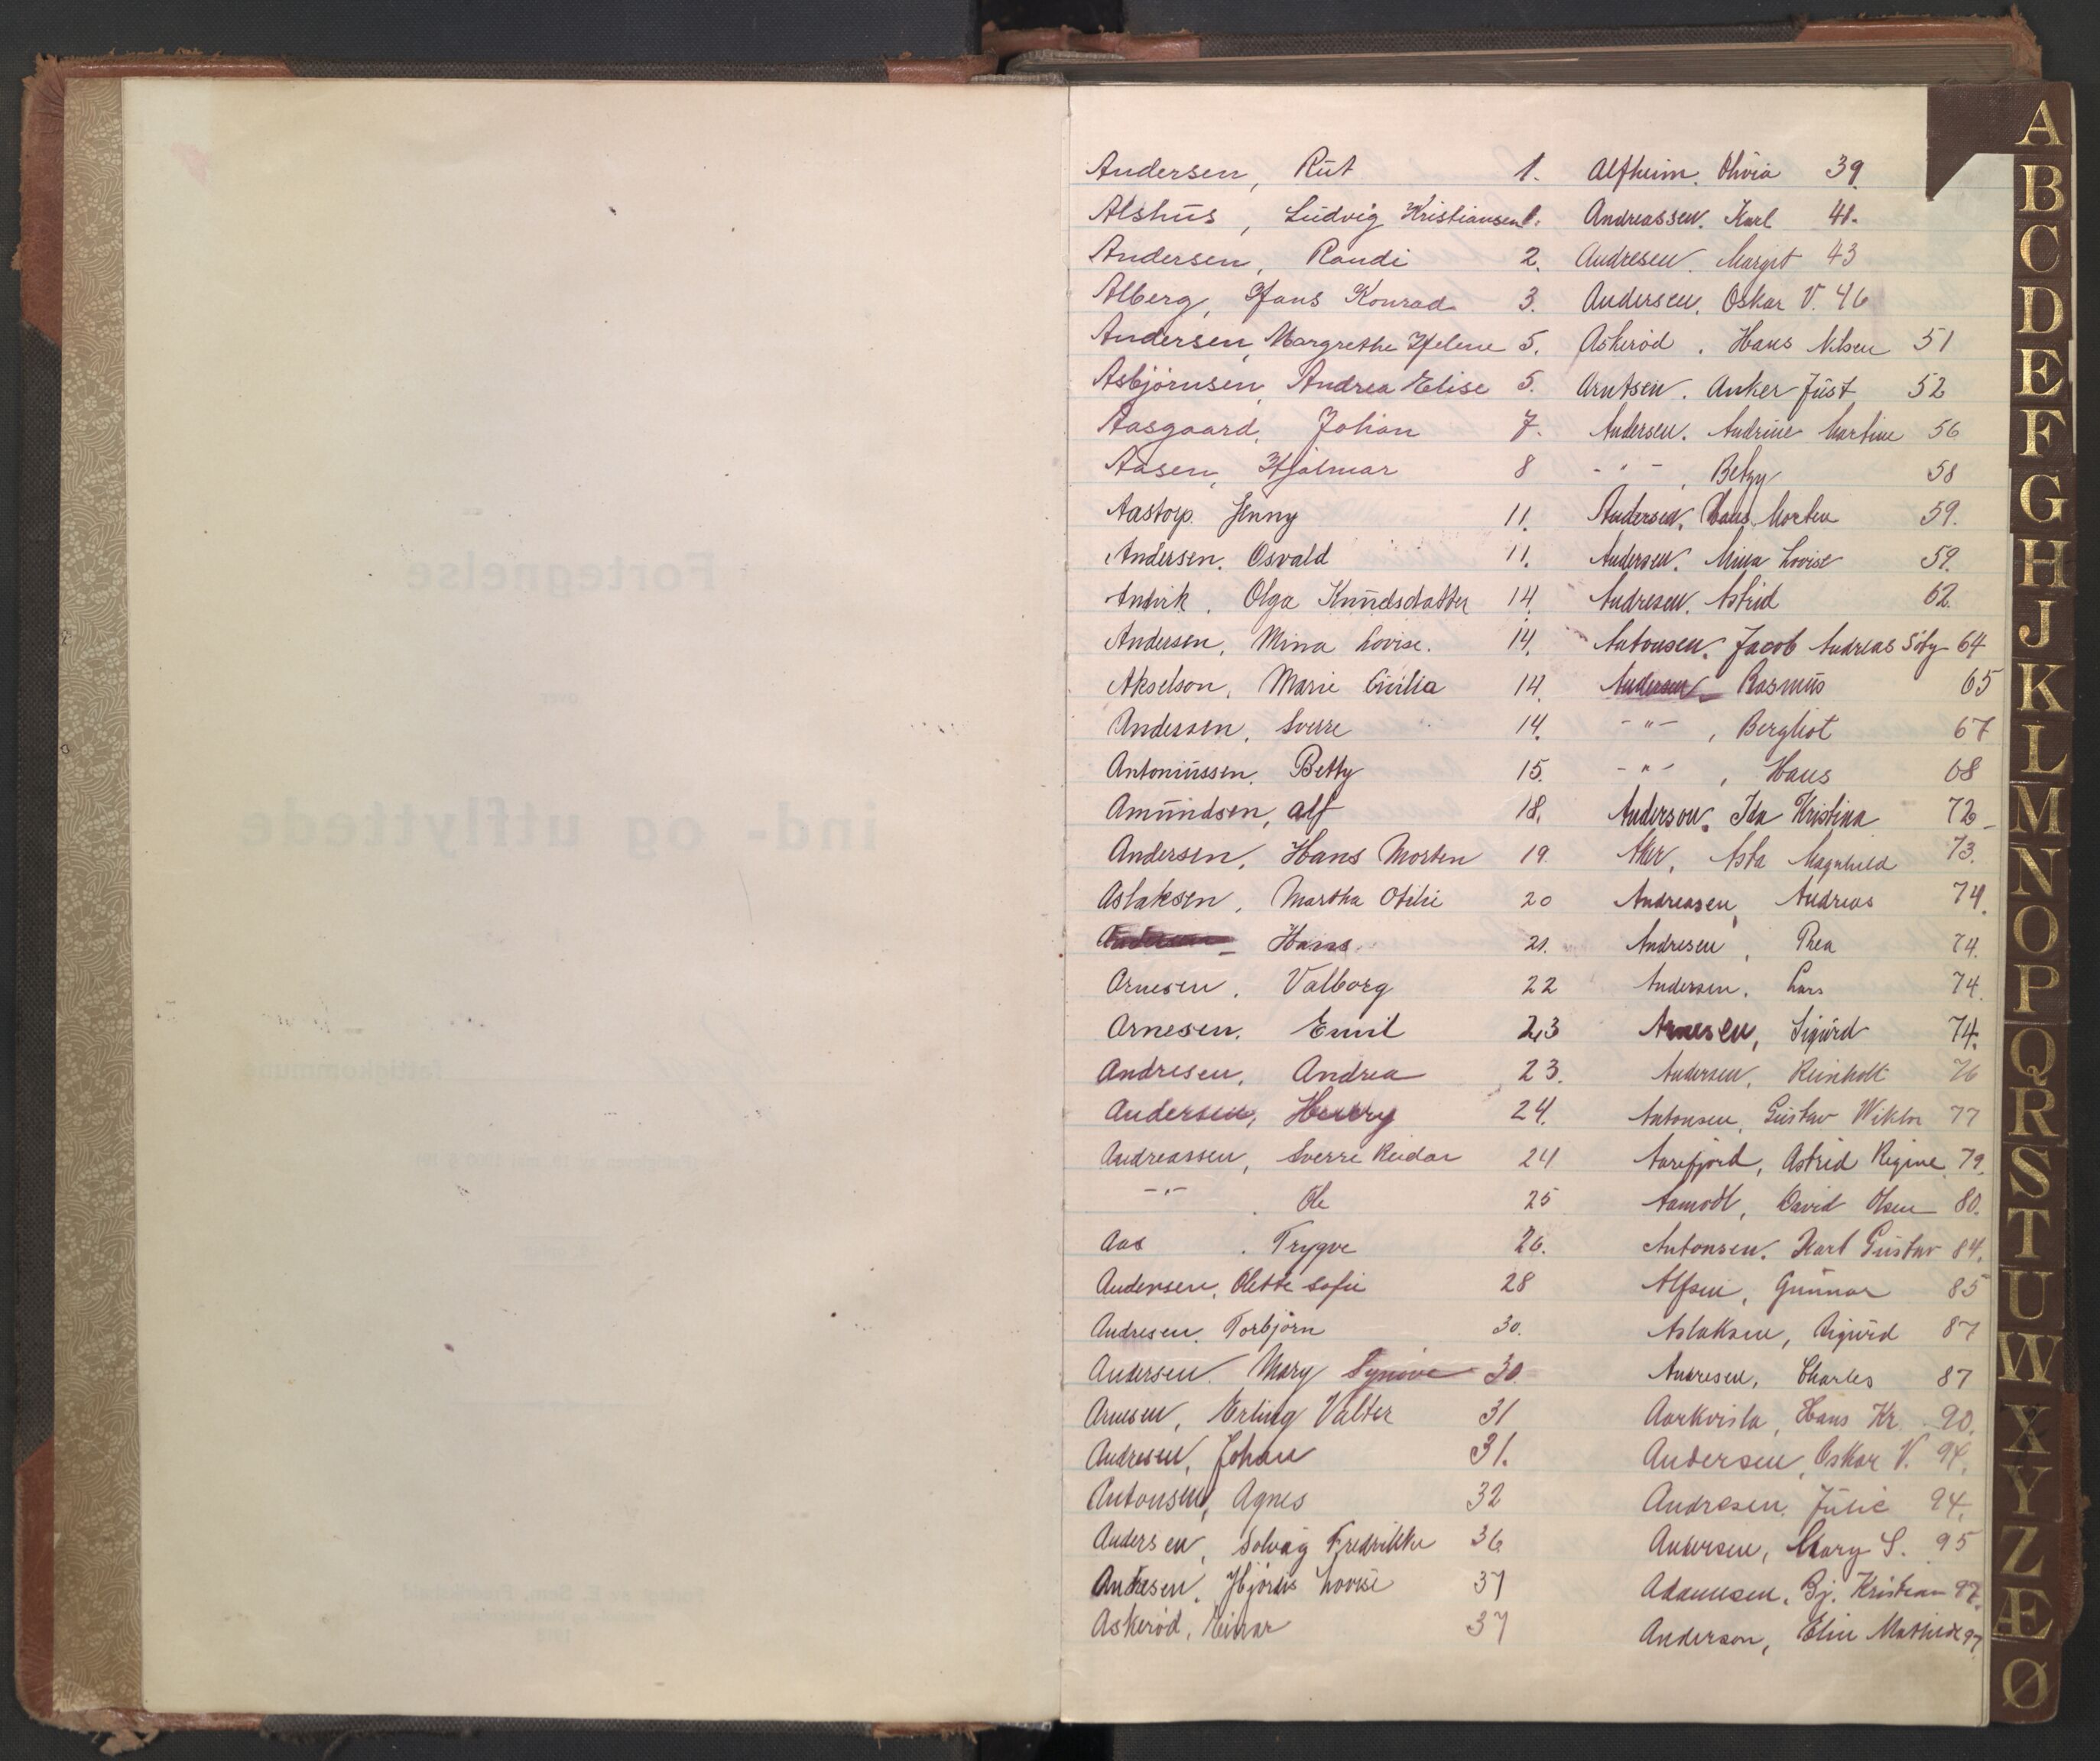 Andersen, Rut 1.
Alshus, Ludvig Kristiansen 1.
Andersen, Randi 2.
Alberg, Hans Konrad 3.
Andersen, Margrethe Helene 5.
Asbjørnsen, Andrea Elise 5.
Aasgaard, Johan 7.
Aasen, Hjalmar 8
Aastorp. Jenny 11.
Andersen. Osvald 11.
Olga Knudsdatter 14.
Andersen, Mina Lovise. 14.
Akselson, Marie Cecilia 14.
Andersen, Sverre 14.
Antoniussen. Betty 15.
Amundsen, Alf 18.
Andersen. Hans Morten 19.
Aslaksen, Martha Otilie 20
Hans. 21.
Arnesen. Valborg 22
Arnesen. Emil 23
Andresen, Andrea 23.
Andersen, Henry 24.
Andreassen, Sverre Reidar 24
-"- . Ole 25
Aas . Trygve 26.
Andersen, Olette Sofie 28
Andresen. Torbjørn 30.
Andersen. Mary Synøve 30.
Arnesen, Erling Valter 31
Andresen, Johan 31.
Antonsen, Agnes 32
Andersen, Solveig Fredrikke 36
Andresen. Hjørdis Lovise 37
Askerød, Einar 37
Alfheim. Olivia 39.
Andreassen. Karl 41.
Andresen. Margit 43
Andersen. Oskar V. 46
Askerød. Hans Nilsen 51
Arntsen. Anker Just 52
Andersen. Andrine Martine 56
-"- , Betzy 58
Andersen. Hans Morten 59.
Andersen. Mina Lovise 59.
Andresen. Astrid 62.
Antonsen. Jacob Andreas Søby 64
Andersen Rasmus 65
-"- , Bergliot 67
-"- , Hans 68
Anderson. Ida Kristina 72
Aker, Asta Magnhild 73.
Andreasen, Andreas 74.
Andresen, Thea 74.
Andersen, Lars 74.
Arnesen, Sigurd 74.
Andersen, Reinholt 76
Antonsen, Gustav Wiktor 77
Aarefjord, Astrid Regine 79.
Aamodt, David Olsen 80.
Antonsen. Karl Gustav 84.
Alfsen, Gunnar 85
Aslaksen, Sigurd 87
Andresen, Charles 87
Aarkvisla, Hans Kr. 90.
Andersen, Oskar V. 94.
Andresen, Julie 94.
Andersen, Mary S. 95
Adamsen, Bj. Kristian 97.
Anderson, Elin Mathilde 97.
A
B
C
D
E
F
G
H
J
K
L
M
N
O
P
Q
R
S
T
U
W
X
Y
Z
Æ
Ø
Fortegnelse
over
ind- og utflyttede
fattigkommune